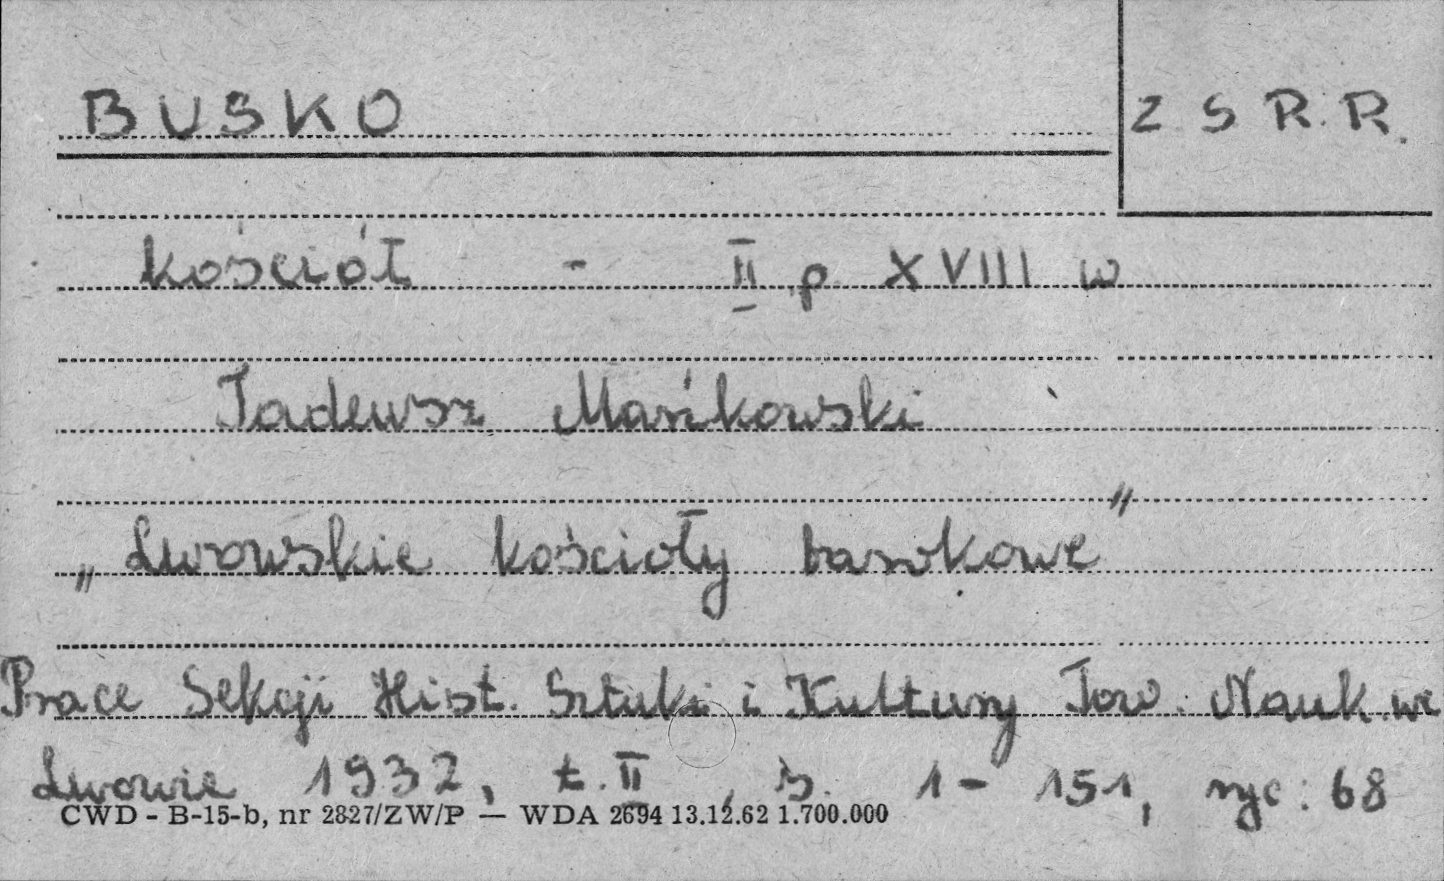 BUSKO
Z S R. R.
kościół - II p. XVIII w
Tadeusz Mańkowski
„Lwowskie kościoły barokowe”
Prace Sekcji Hist. Sztuki i Kultury Tow. Nauk. we
Lwowie 1932, t. II, s. 1 - 151, ryc: 68
CWD - B-15-b, nr 2827/ZW/P — WDA 2694 13.12.62 1.700.000